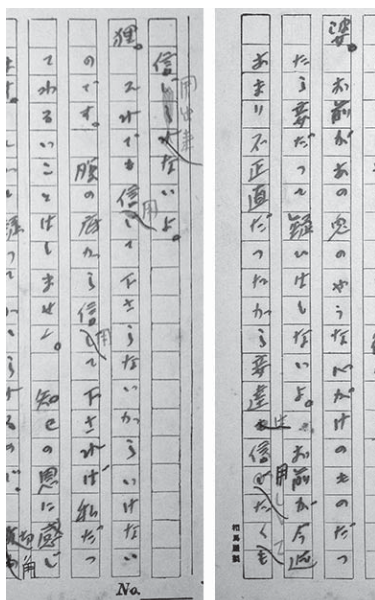 婆。お前があの兎のやうな心がけのものだつ
たら妾だつて疑いはしないよ。お前が今迄
あまり不正直だつたから妾達は信用したくも
相馬屋製
信用出来ないよ。
狸。それでも信用して下さらないからいけない
のです。腹の底から信用して下されば私だつ
てわるいことはしません。知己の恩に感じ
No.